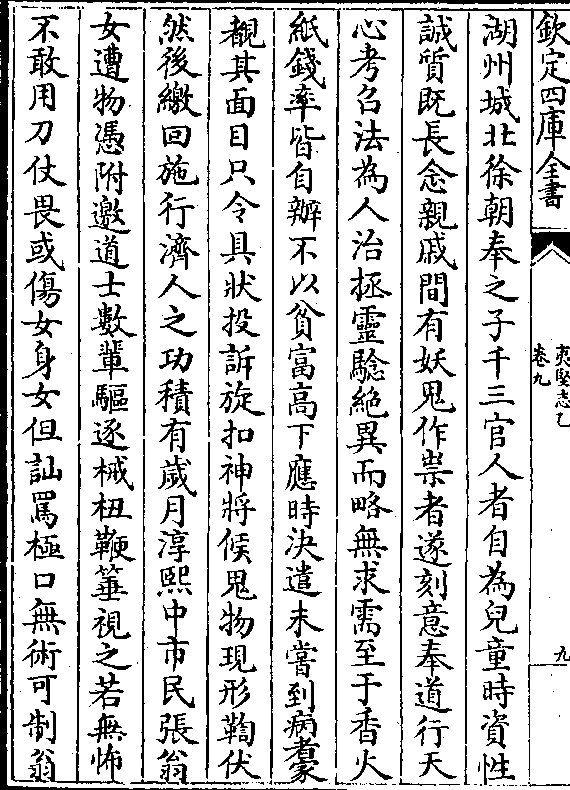 欽定四庫全書
夷堅志乙
卷九
九
湖州城北徐朝奉之子千三官人者自為兒童時資性
誠質既長念親戚間有妖鬼作祟者遂刻意奉道行天
心考召法為人治拯靈驗絕異而略無求需至于香火
紙錢率皆自辦不以貧富高下應時決遣未嘗到病者家
覩其面目只令具狀投訴旋扣神將候鬼物現形鞫伏
然後繳回施行濟人之功積有歲月淳熙中市民張翁
女遭物憑附邀道士數輩驅逐械杻鞭箠視之若無怖
不敢用刀仗畏或傷女身女但訕罵極口無術可制翁